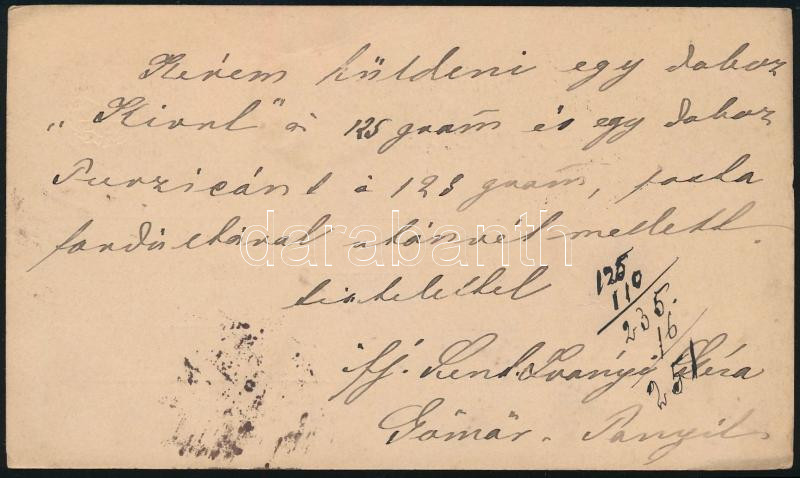 Kérem küldeni egy doboz
„Kiral" à 125 gram̄ és egy doboz
Purzicánt à 125 gram̄, posta
fordúltával utánvét mellett.
tisztelettel
125
110
235.
16
251
ifj. Szent Iványi Géza
Gömör. Panyit
darabanth